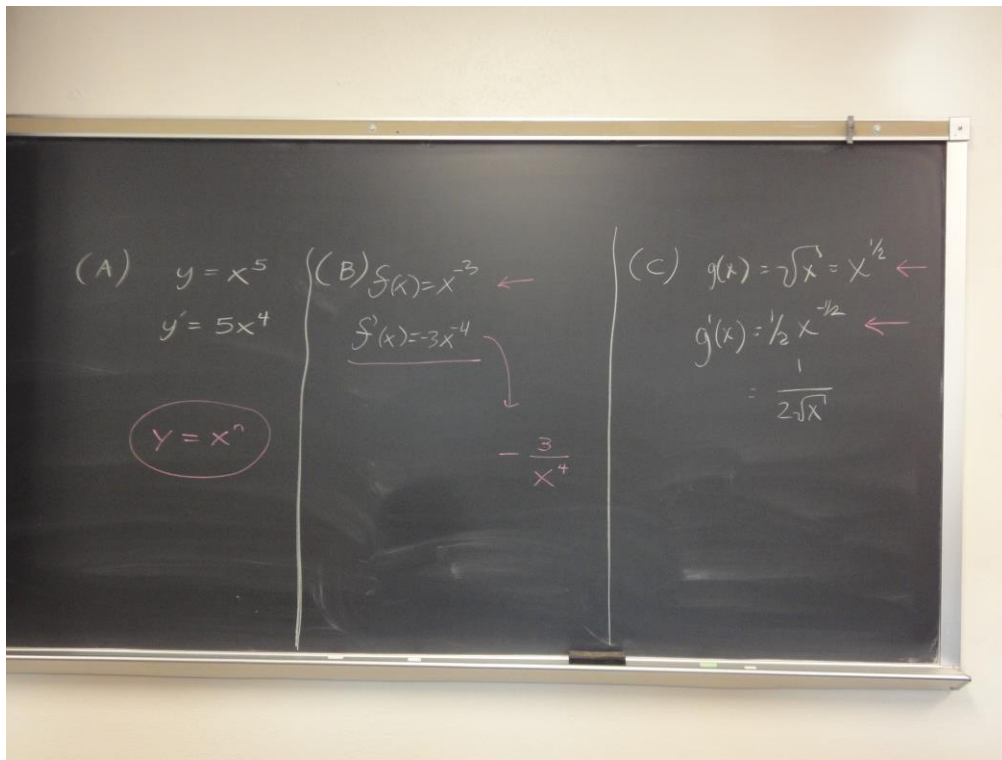 (A) y = x⁵
y' = 5x⁴
y = xⁿ
(B) f(x) = x⁻³ ←
f'(x) = -3x⁻⁴
- 3/x⁴
(C) g(x) = √x = x^1/2 ←
g'(x) = 1/2 x^-1/2 ←
= 1/(2√x)